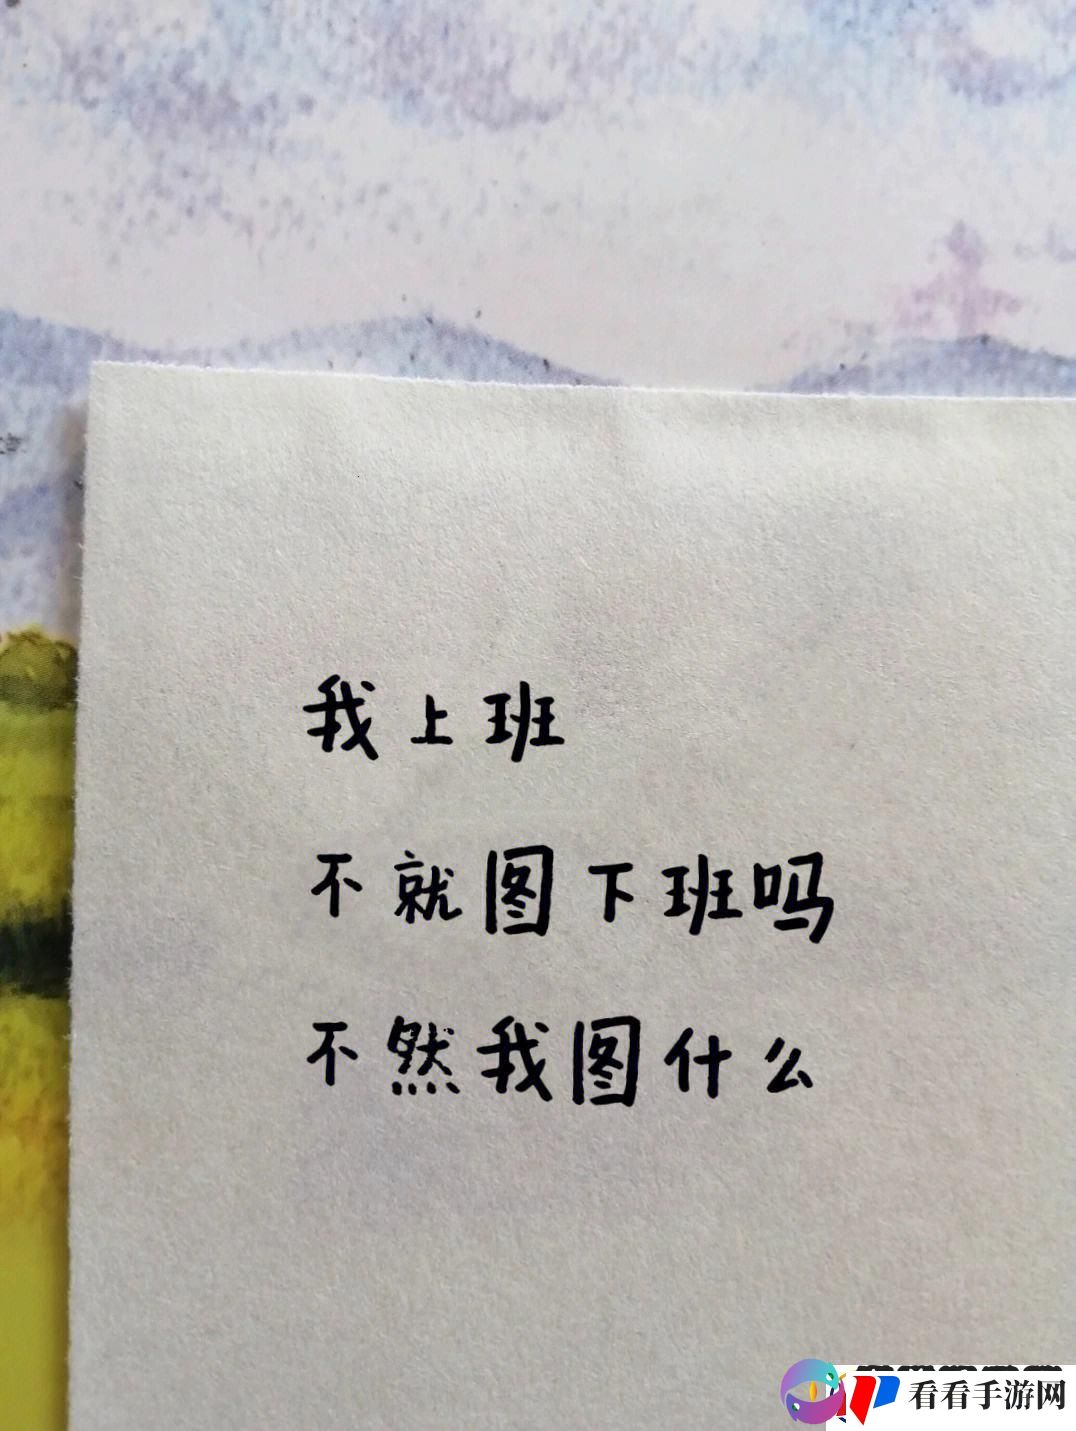 我上班
不就图下班吗
不然我图什么
看看手游网